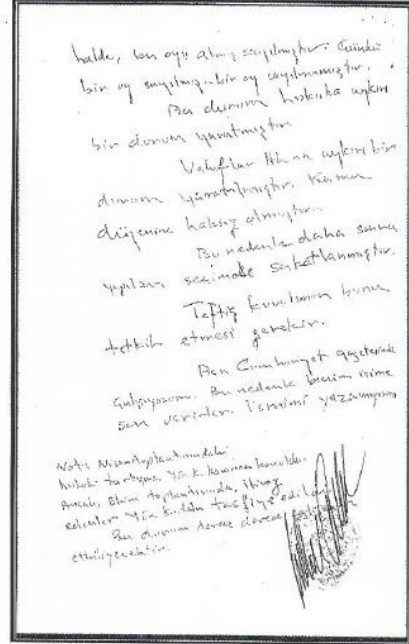 halde, bu oyu almış sayılmıştır. Çünkü
bir oy sayılmış. bir oy sayılmamıştır.
Bu durum hukuka aykırı
bir durum yaratmıştır
Vakıflar aykırı bir
durum yaratılmıştır. Kanun
düzenine olmuştur.
Bu nedenle daha sonra
yapılan seçimde sakatlanmıştır.
Teftiş kurulunun bunu,
tetkik etmesi gerekir.
Ben Cumhuriyet gazetesinde
çalışıyorum. Bu nedenle benim işime
son verirler. İsmimi yazamıyorum
Not: Nisan toplantısındaki
hukuki tartışma, Y.K. konuldu.
Ancak, Ekim toplantısında, itiraz
edenler Y.K. dan tasfiye edilen
Bu durum derece derece